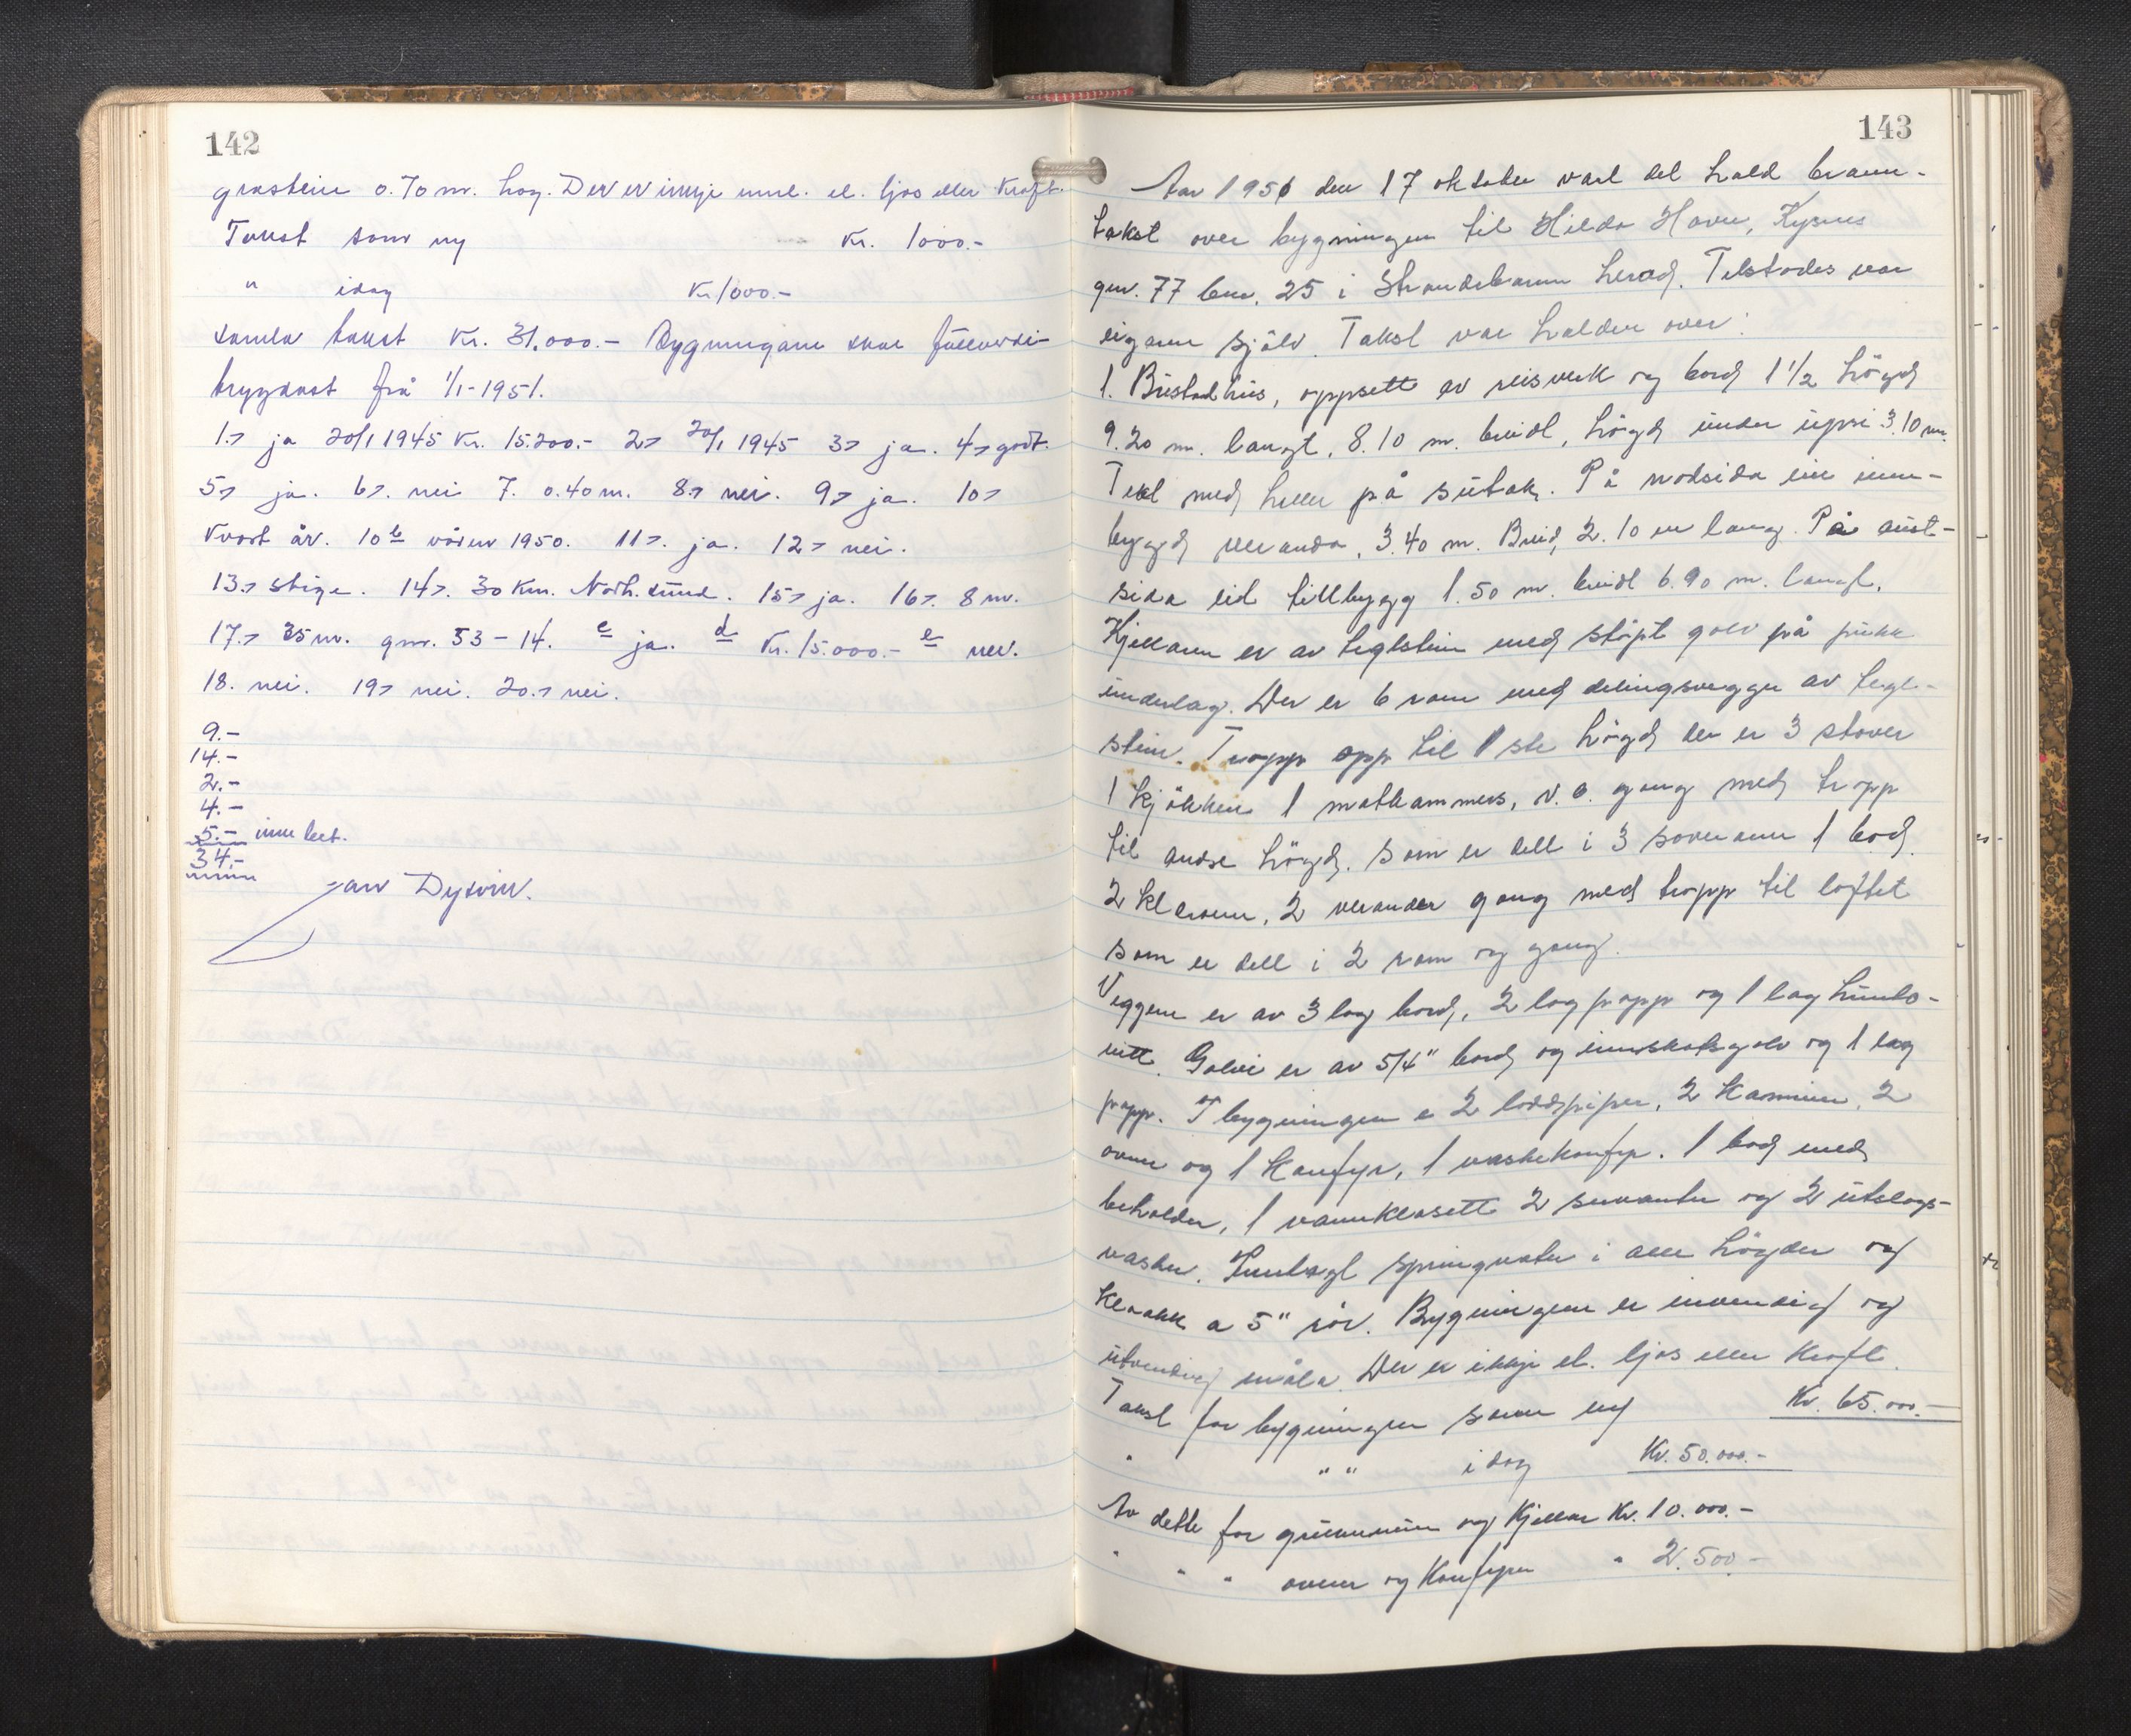 142
gråstein 0.70 m. høg. Der er inkje innl. el. ljos eller kraft.
Takst som ny Kr. 1000.-
" idag Kr. 1000.-
samla takst Kr. 31.000.- Bygningane skal fullverdi-
trygdast frå 1/1-1951.
1.> ja 20/1 1945 Kr. 15.200.- 2> 20/1 1945 3> ja. 4> godt.
5> ja. 6>. nei 7. 0.40 m. 8.> nei. 9> ja. 10>
Kvart år. 10 b våren 1950. 11>. ja. 12> nei.
13.> stige. 14>. 30 Km. Norh.sund. 15> ja. 16>. 8 m.
17.> 35 m. gnr. 53-14. c ja. d Kr. 15.000.- e nei.
18. nei. 19> nei. 20.> nei.
9.-
14.-
2.-
4.-
5.- inn bet.
34.-
Jan Dysvik.
143
Aar 1951 den 17 oktober vart det hald brann-
takst over bygningen til Hilda Havn, Kysnes
gnr. 77 bnr. 25 i Strandebarm herad. Tilstades var
eigaren sjölv. Takst var halden over:
1. Bustadhus, oppsett av reisverk og bord 1 1/2 högd
9.20 m. langt, 8.10 m. breidt, högd under upsi 3.10 m.
Tekt med heller på sutak. På nodsida ein inn-
bygd veranda, 3.40 m. Breid, 2.10 m lang. På aust-
sida eit tillbygg 1.50 m. breidt 6.90 m. langt.
Kjellaren er av teglstein med støpt golv på pukk
underlag. Der er 6 rom med delingsvegger av tegl-
stein. Tropp opp til 1 ste högd der er 3 stover
1 kjökken 1 matkammers, v.c. gang med tropp
til andre högd. som er delt i 3 soverum 1 bod.
2 kleroum, 2 verander gang med tropp til loftet
som er delt i 2 rom og gang.
Veggene er av 3 lag bord, 2 lag papp og 1 lag hunto-
nitt. Golvi er av 5/4" bord og innskotsgolv og 1 lag
papp. I bygningen e 2 loddpiper, 2 Kaminer, 2
ovner og 1 Komfyr, 1 vaskekomfyr. 1 bad med
beholder, 1 vannklosett 2 servanter og 2 utslags-
vasker. Innlagt springvater i alle högder og
Kloakk a 5" rör. Bygningen er innvendig og
utvendig måla. Der er ikkje el. ljos eller Kraft.
Takst for bygningen som ny Kr. 65.000.-
" " " idag Kr. 50.000.-
Av dette for grunnmur og Kjellar Kr. 10.000.-
" " " ovner og Komfyrer " 2.500.-